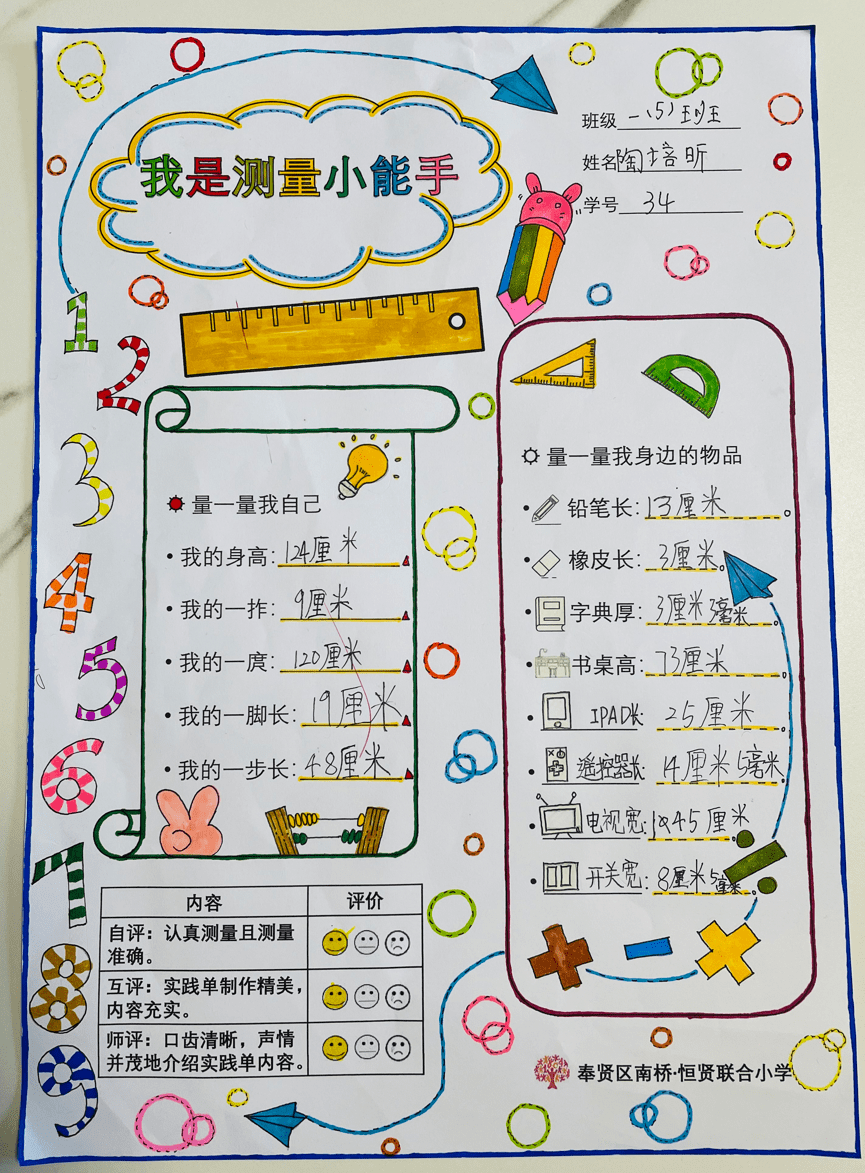 班级 一(5)班
姓名 陶培昕
学号 34
我是测量小能手
1
2
3
4
5
6
7
8
9
量一量我自己
我的身高: 124厘米
我的一拃: 9厘米
我的一庹: 120厘米
我的一脚长: 19厘米
我的一步长: 48厘米
量一量我身边的物品
铅笔长: 13厘米
橡皮长: 3厘米
字典厚: 3厘米3毫米
书桌高: 73厘米
IPAD长: 25厘米
遥控器长: 14厘米5毫米
电视宽: 145厘米
开关宽: 8厘米5毫米
内容 评价
自评：认真测量且测量
准确。
互评：实践单制作精美，
内容充实。
师评：口齿清晰，声情
并茂地介绍实践单内容。
奉贤区南桥·恒贤联合小学